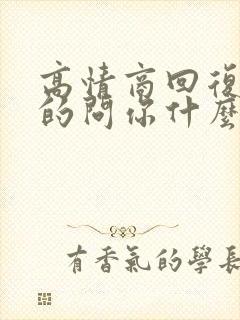 高情商回復
的問你什麼
有香氣的學長